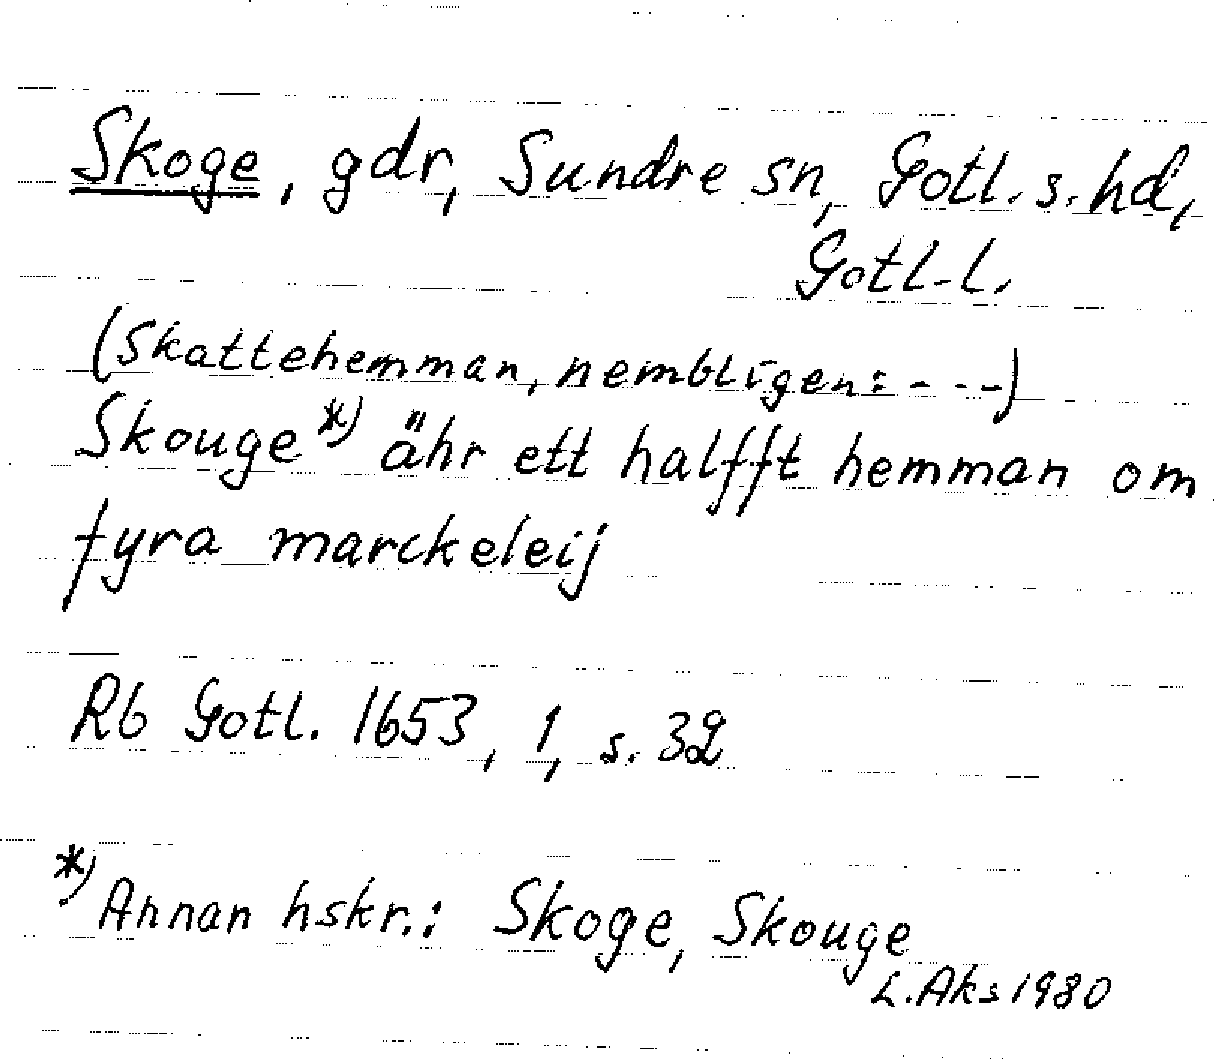 Skoge, gdr, Sundre sn, Gotl. s. hd,
Gotl. l.
(Skattehemman, nembligen: - - -)
Skouge *) ähr ett halfft hemman om
fyra marckeleij
Rb Gotl. 1653, 1, s. 32
*) Annan hskr.: Skoge, Skouge
L. Aks 1980